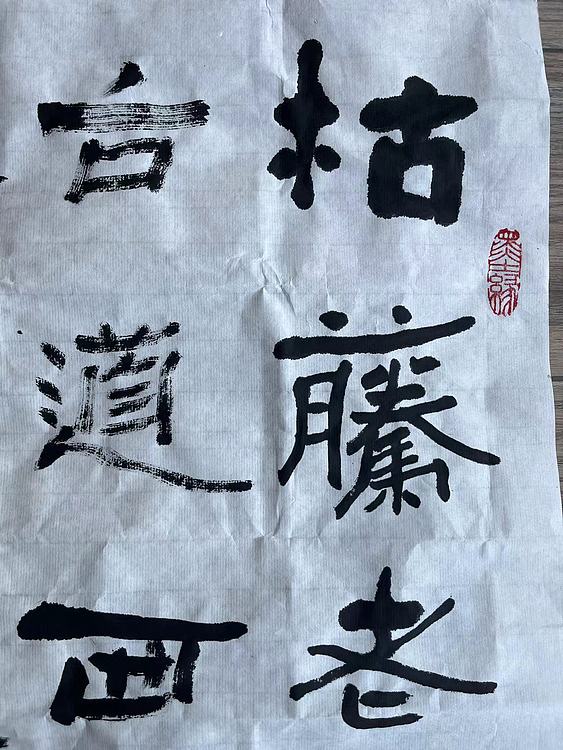 枯藤老
古道西